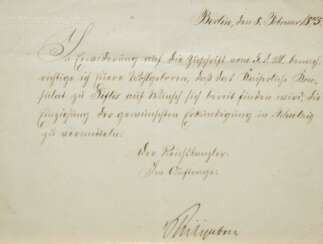 Berlin, den 8. Februar 1885
In Erwiderung auf die Zuschrift vom 3. d. M. benach-
richtige ich Euere Wohlgeboren, daß das Kaiserliche Kon-
sulat zu auf Wunsch sich bereit finden wird, die
Einziehung der gewünschten Erkundigung in
zu vermitteln.
Der Reichskanzler.
Im Auftrage: